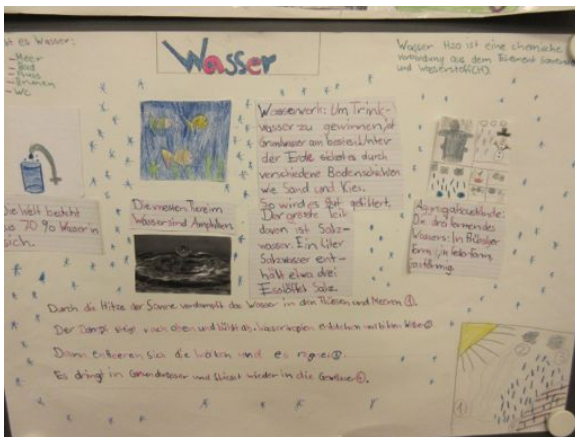 Wasser
st es Wasser:
- Meer
- Bad
- Fluss
- Brunnen
- Wc
Wasser H2O ist eine chemische
Verbindung aus dem Element Sauerstoff
und Wasserstoff(H).
Die Welt besteht
aus 70 % Wasser in
sich.
Die meisten Tiere im
Wasser sind Amphibien.
Wasserwerk: Um Trink-
wasser zu gewinnen, ist
Grundwasser am besten. Unter
der Erde sickert es durch
verschiedene Bodenschichten
wie Sand und Kies.
So wird es gut gefiltert.
Der größte Teil
davon ist Salz-
wasser. Ein Liter
Salzwasser ent-
hält etwa drei
Esslöffel Salz.
Aggregatzustände:
Die drei Formen des
Wassers: In flüssiger
Form, in fester Form,
gasförmig.
Durch die Hitze der Sonne verdampft das Wasser in den Flüssen und Meeren ①.
Der Dampf steigt nach oben und kühlt ab. Wassertropfen entstehen und bilden
Dann entleeren sich die Wolken und es regnet ③.
Es dringt in Grundwasser und fliesst wieder in die Gewässer ④.
①
②
③